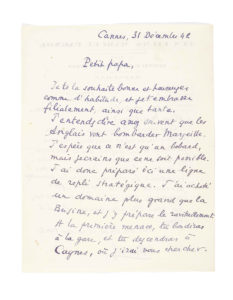 Cannes, 31 Décembre 42
Petit papa,
Je te la souhaite bonne et heureuse
comme d'habitude, et je t'embrasse
filialement, ainsi que tante.
J'entends dire souvent que les
Anglais vont bombarder Marseille.
J'espère que ce n'est qu'un bobard,
mais je crains que ce ne soit possible.
J'ai donc préparé ici une ligne
de repli stratégique. J'ai acheté
un domaine plus grand que la
Buzine, et j'y prépare le ravitaillement
A la première menace, tu
à la gare, et tu descendras à
Cagnes, où j'irai vous chercher.